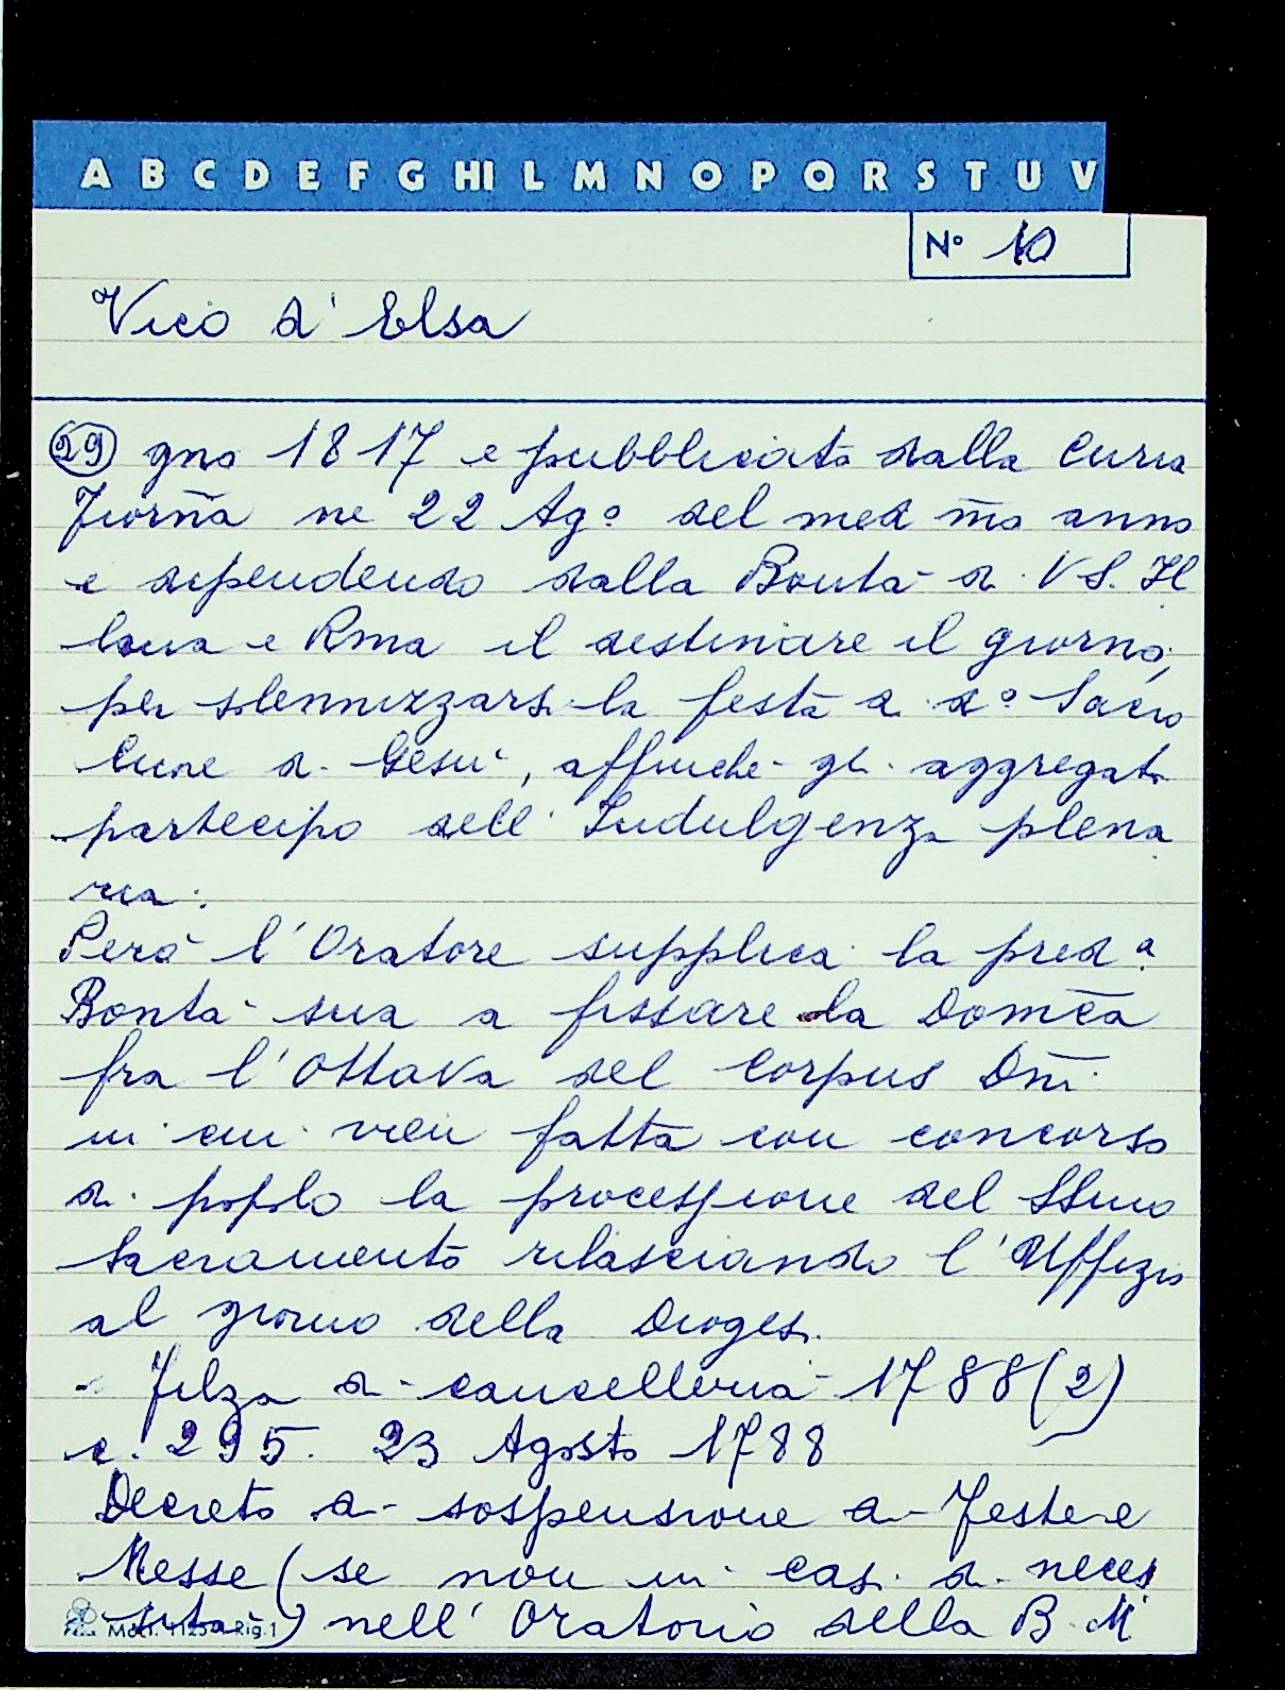 A B C D E F G HI L M N O P Q R S T U V
N° 10
Vico d'Elsa
29 gno 1817 e pubblicato dalla Curia
Fiorña ne 22 Ag° del med m̄o anno
e dipendendo dalla Bontà di VS. Il
lma e Rma il destinare il giorno,
per solennizzarsi la festa di d° Sacro
Cuore di Gesù, affinchè gli aggregati
partecipo dell' Indulgenza plena
ria:
Però l'Oratore supplica la pred.ª
Bontà sua a fissare la Domc̄a
fra l'Ottava del Corpus Dn̄i
in cui vien fatta con concorso
di popolo la processione del SSmo
Sacramento rilasciando l'Uffizio
al giorno della Diogesi.
Filza di cancelleria 1788 (2)
c. 295. 23 Agosto 1788
Decreto di sospensione di Feste e
Messe (se non in casi di neces
sità) nell' Oratorio della B. M
Mod. Rig. 1